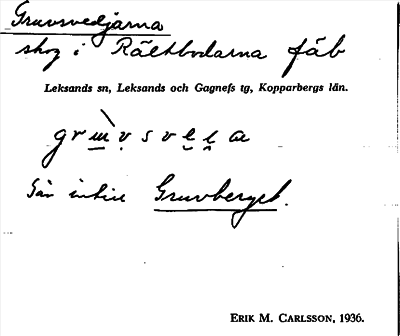 Gruvsvedjarna
skog i Rältbodarna fäb
Leksands sn, Leksands och Gagnefs tg, Kopparbergs län.
Går intill Gruvberget.
ERIK M. CARLSSON, 1936.